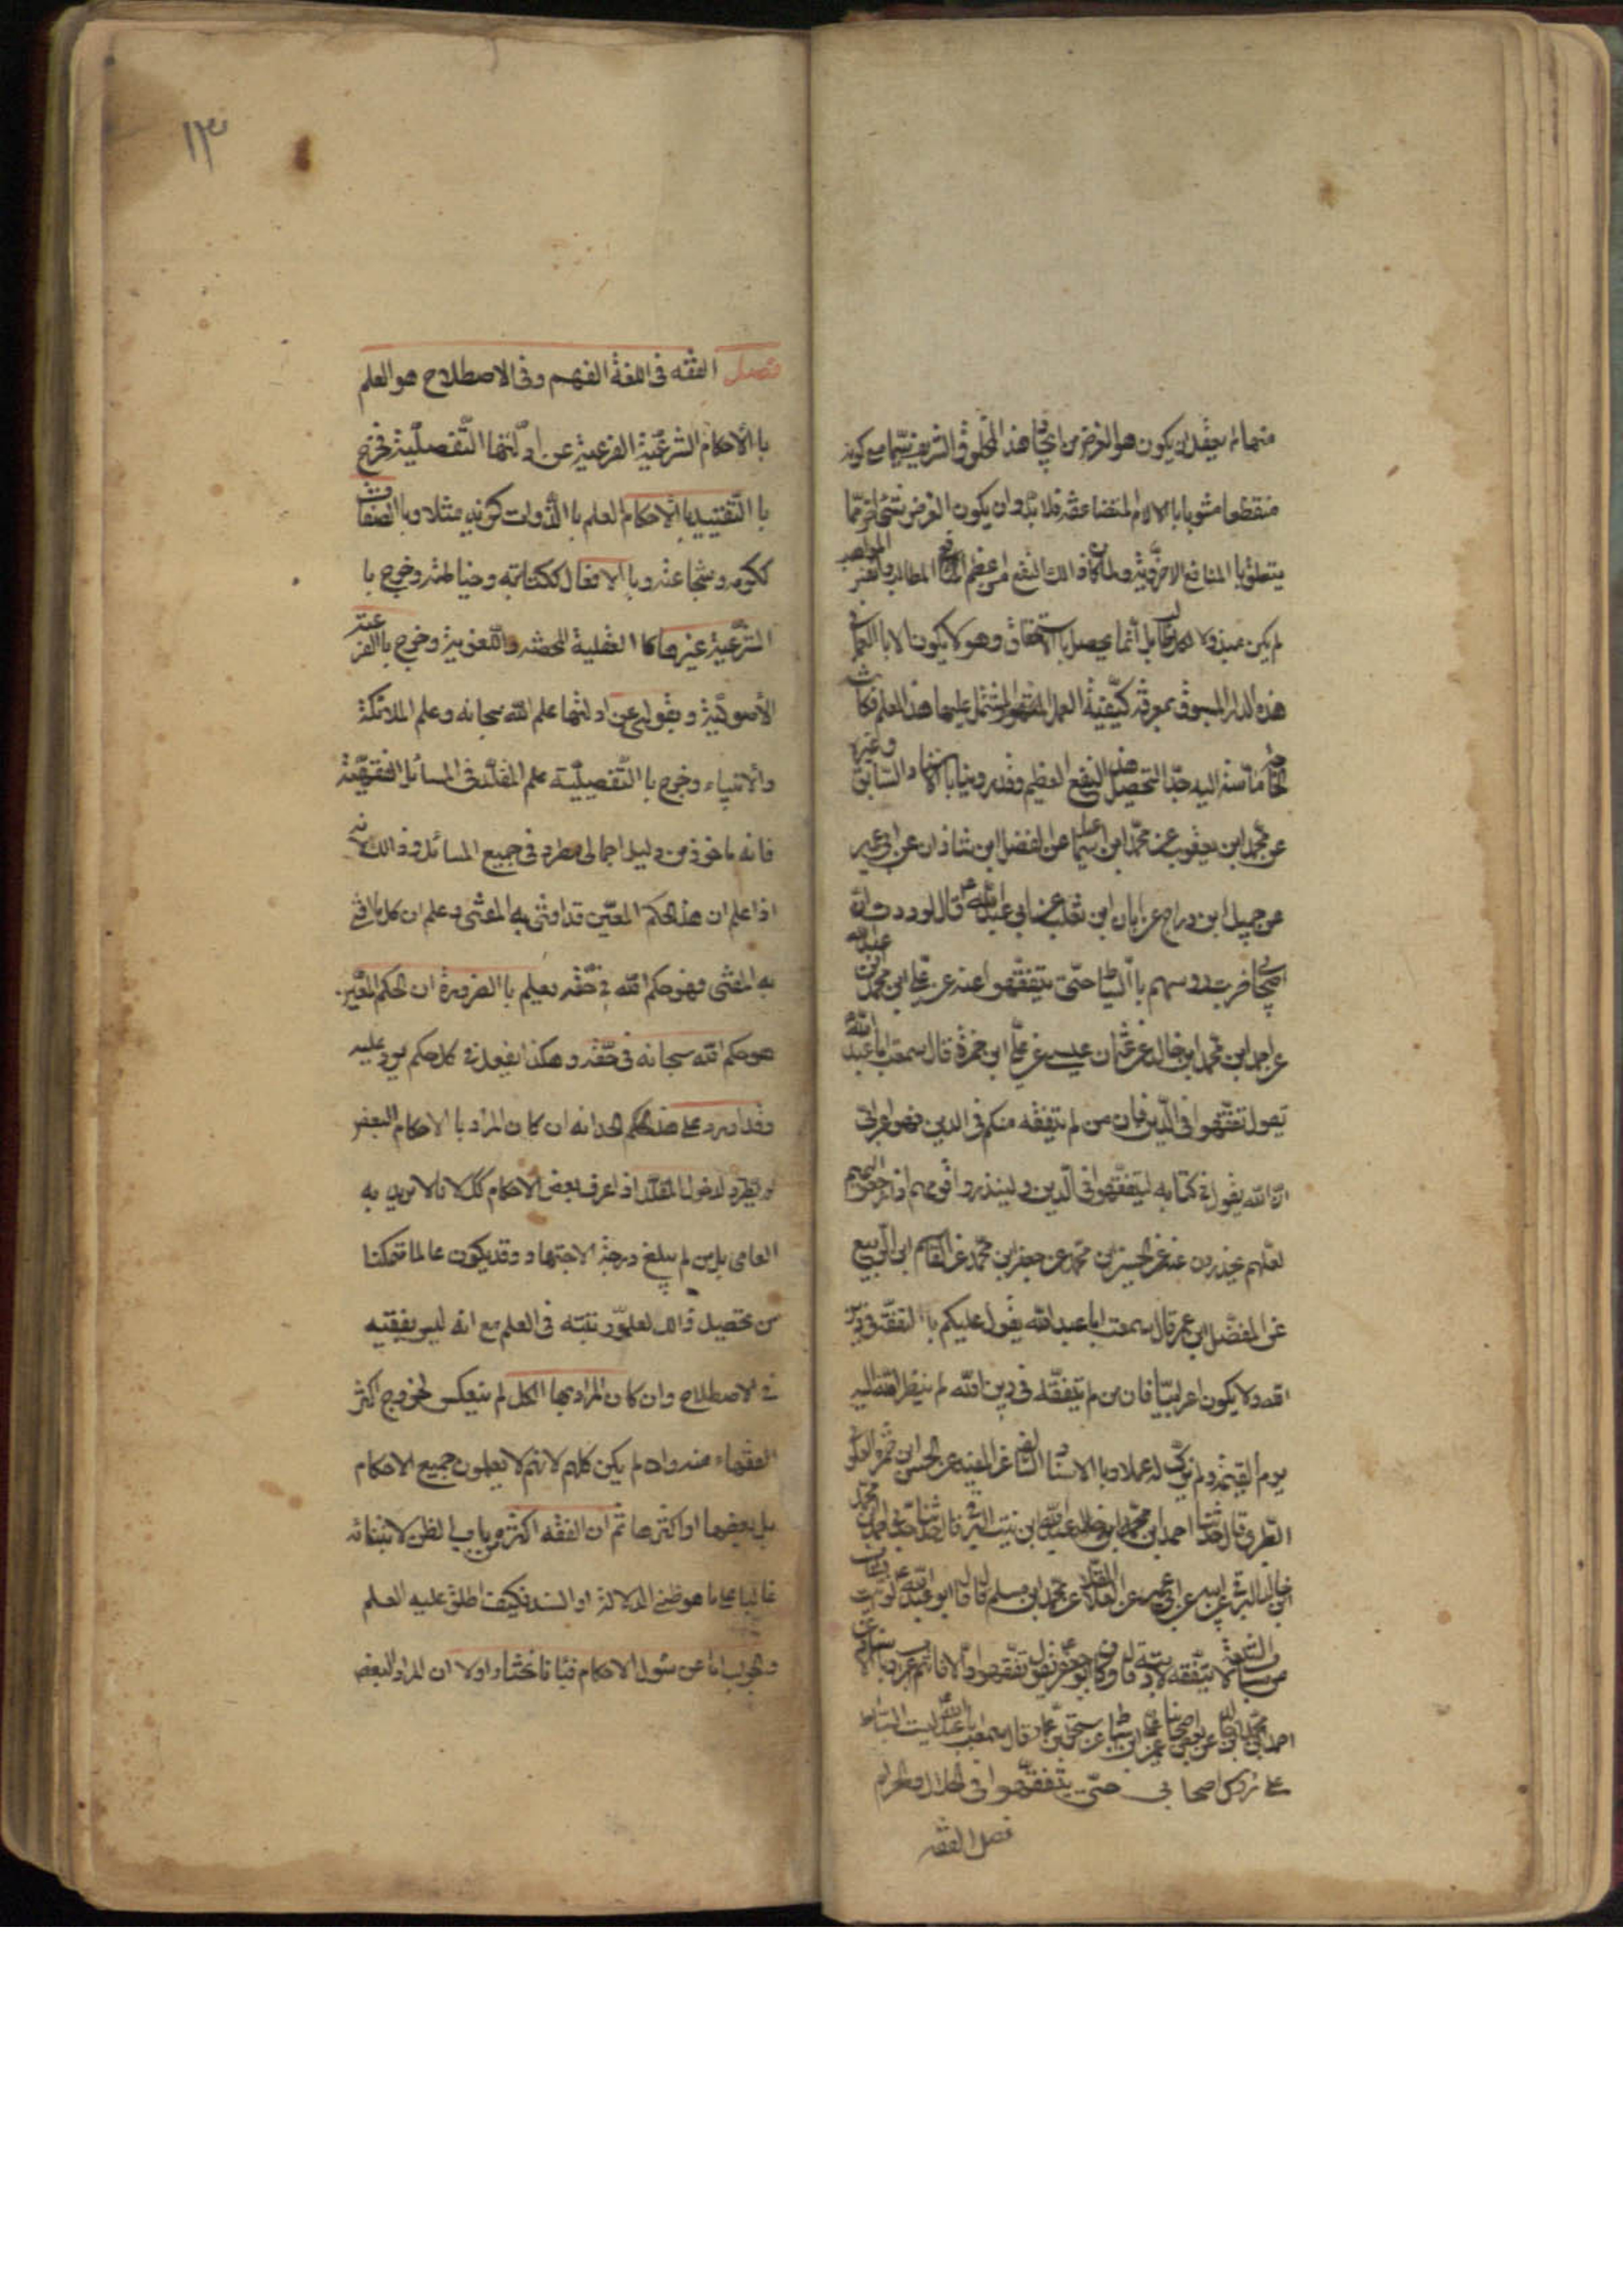 منها لم يعقل ان يكون هو الغرض من ايجاد هذا المخلوق الشريف سيّما مع كونه
منقطعا مشوبا با الالام المتضاعفة فلا بدّ وان يكون الغرض شيئا اخر ممّا
يتعلق با المنافع الاخرويّة ولما كان ذالك النفع من اعظم المطالب وانفس المواهب
لم يكن مبذولا لكل طالب بل انّما يحصل با الاستحقاق وهو لا يكون الا با العمل فى
هذه الدار المسبوق بمعرفة كيفيّة العمل المشتمل عليها هذا العلم فكانت
الحاجة ماسّة اليه جدّا لتحصيل هذا النفع العظيم وقد روينا با الاسناد السّابق وغيره
عن محمّد ابن يعقوب عن محمّد ابن اسمعيل عن الفضل ابن شاذان عن ابى عمير
عن جميل ابن دراج عن ابان ابن تغلب عن ابى عبد الله ع قال لوددت انّ
اصحابى ضربت رؤسهم با السّياط حتّى يتفقّهوا عنه عن على ابن محمد ابن عبد الله
عن احمد ابن محمّد ابن خالد عن عثمان عيسى عن على ابن حمزة قال سمعت ابا عبد الله
يقول تفقّهوا فى الدّين فان من لم يتفقه منكم فى الدين فهو اعرابىّ
انّ الله يقول فى كتابه ليتفقّهوا فى الّدين ولينذروا قومهم اذا رجعوا اليهم
لعلّهم يحذرون عنه عن الحسين بن محمّد عن جعفر ابن محمّد عن القاسم ابن الربيع
عن المفضّل ابن عمر قال سمعت ابا عبد الله يقول عليكم با التفقّه فى دين
الله ولا يكون اعرابيّا فان من لم يتفقّه فى دين الله لم ينظر الله اليه
يوم القيمة ولم يزكّ له عملا وبا الاسناد السّالف عن المفيد عن الحسن ابن حمزة العلوى
الطّبرى قال حدّثنا احمد ابن محمّد ابن عبد الله ابن بنت البرقى قال حدّثنا جدّى احمد ابن محمّد
ابن خالد البرقى عن ابيه عن ابن ابى عمير عن العلاء عن محمّد ابن مسلم قال قال ابو عبد الله ع لو اتيت بشاب
من شباب الشيعة لا يتفقه لادبته قال وكان ابو جعفر ع يقول تفقّهوا والّا فانتم اعراب
قال سمعت ابا عبد الله ليت السّياط
على رؤس اصحابى حتّى يتفقّهوا فى الحلال والحرام
فصل الفقه
١٣
فصل الفقه فى اللغة الفهم وفى الاصطلاح هو العلم
با الاحكام الشرعيّة الفرعية عن ادلّتها التّفصليّة فخرج
با التّقييد با الاحكام العلم با الذّوات كزيد مثلا وبا الصّفات
ككرمه وشجاعته وبا الافعال ككتابته وخياطته وخرج با
الشّرعيّة غيرها كا العقلية المحضه واللّغويّة وخرج با الفرعيّة
الأصوليّة وبقولى عن ادلتها علم الله سبحانه وعلم الملائكة
والأنبياء وخرج با التّفصيليّة علم المقلّد فى المسائل الفقهيّة
فانه ماخوذ من دليل اجمالى مطرد فى جميع المسائل وذالك لأنه
اذا علم ان هذا الحكم المعيّن قد افتى به المفتى وعلم ان كل ما افتى
به المفتى فهو حكم الله فى حقّه يعلم با الضرورة ان الحكم المعيّن
هو حكم الله سبحانه فى حقّه وهكذا يفعل فى كل حكم يرد عليه
وقد اورد على هذا الحد انه ان كان المراد با الاحكام البعض
لم يطرد لدخول المقلّد اذا عرف بعض الاحكام كك لانا لا نريد به
العامى بل من لم يبلغ درجة الاجتهاد وقد يكون عالما متمكنا
من تحصيل ذالك لعلوّ رتبته فى العلم مع انه ليس بفقيه
فى الاصطلاح وان كان المراد بها الكل لم ينعكس لخروج اكثر
الفقهاء عنه وان لم يكن كلهم لانهم لا يعلمون جميع الاحكام
بل بعضها او اكثرها ثم ان الفقه اكثره من باب الظن لابتنائه
غالبا على ما هو ظنى الدلالة او السند فكيف اطلق عليه العلم
والجواب اما عن سئول الاحكام فبانا نختار اولا ان المراد البعض